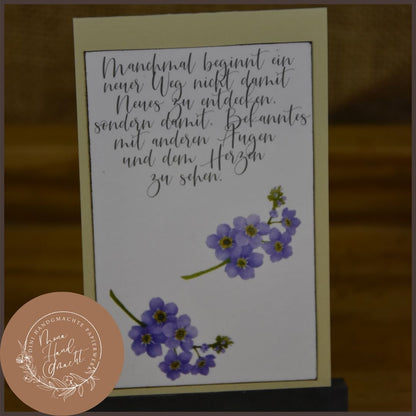 Manchmal beginnt ein
neuer Weg nicht damit
Neues zu entdecken,
sondern damit. Bekanntes
mit anderen Augen
und dem Herzen
zu sehen.
Hand